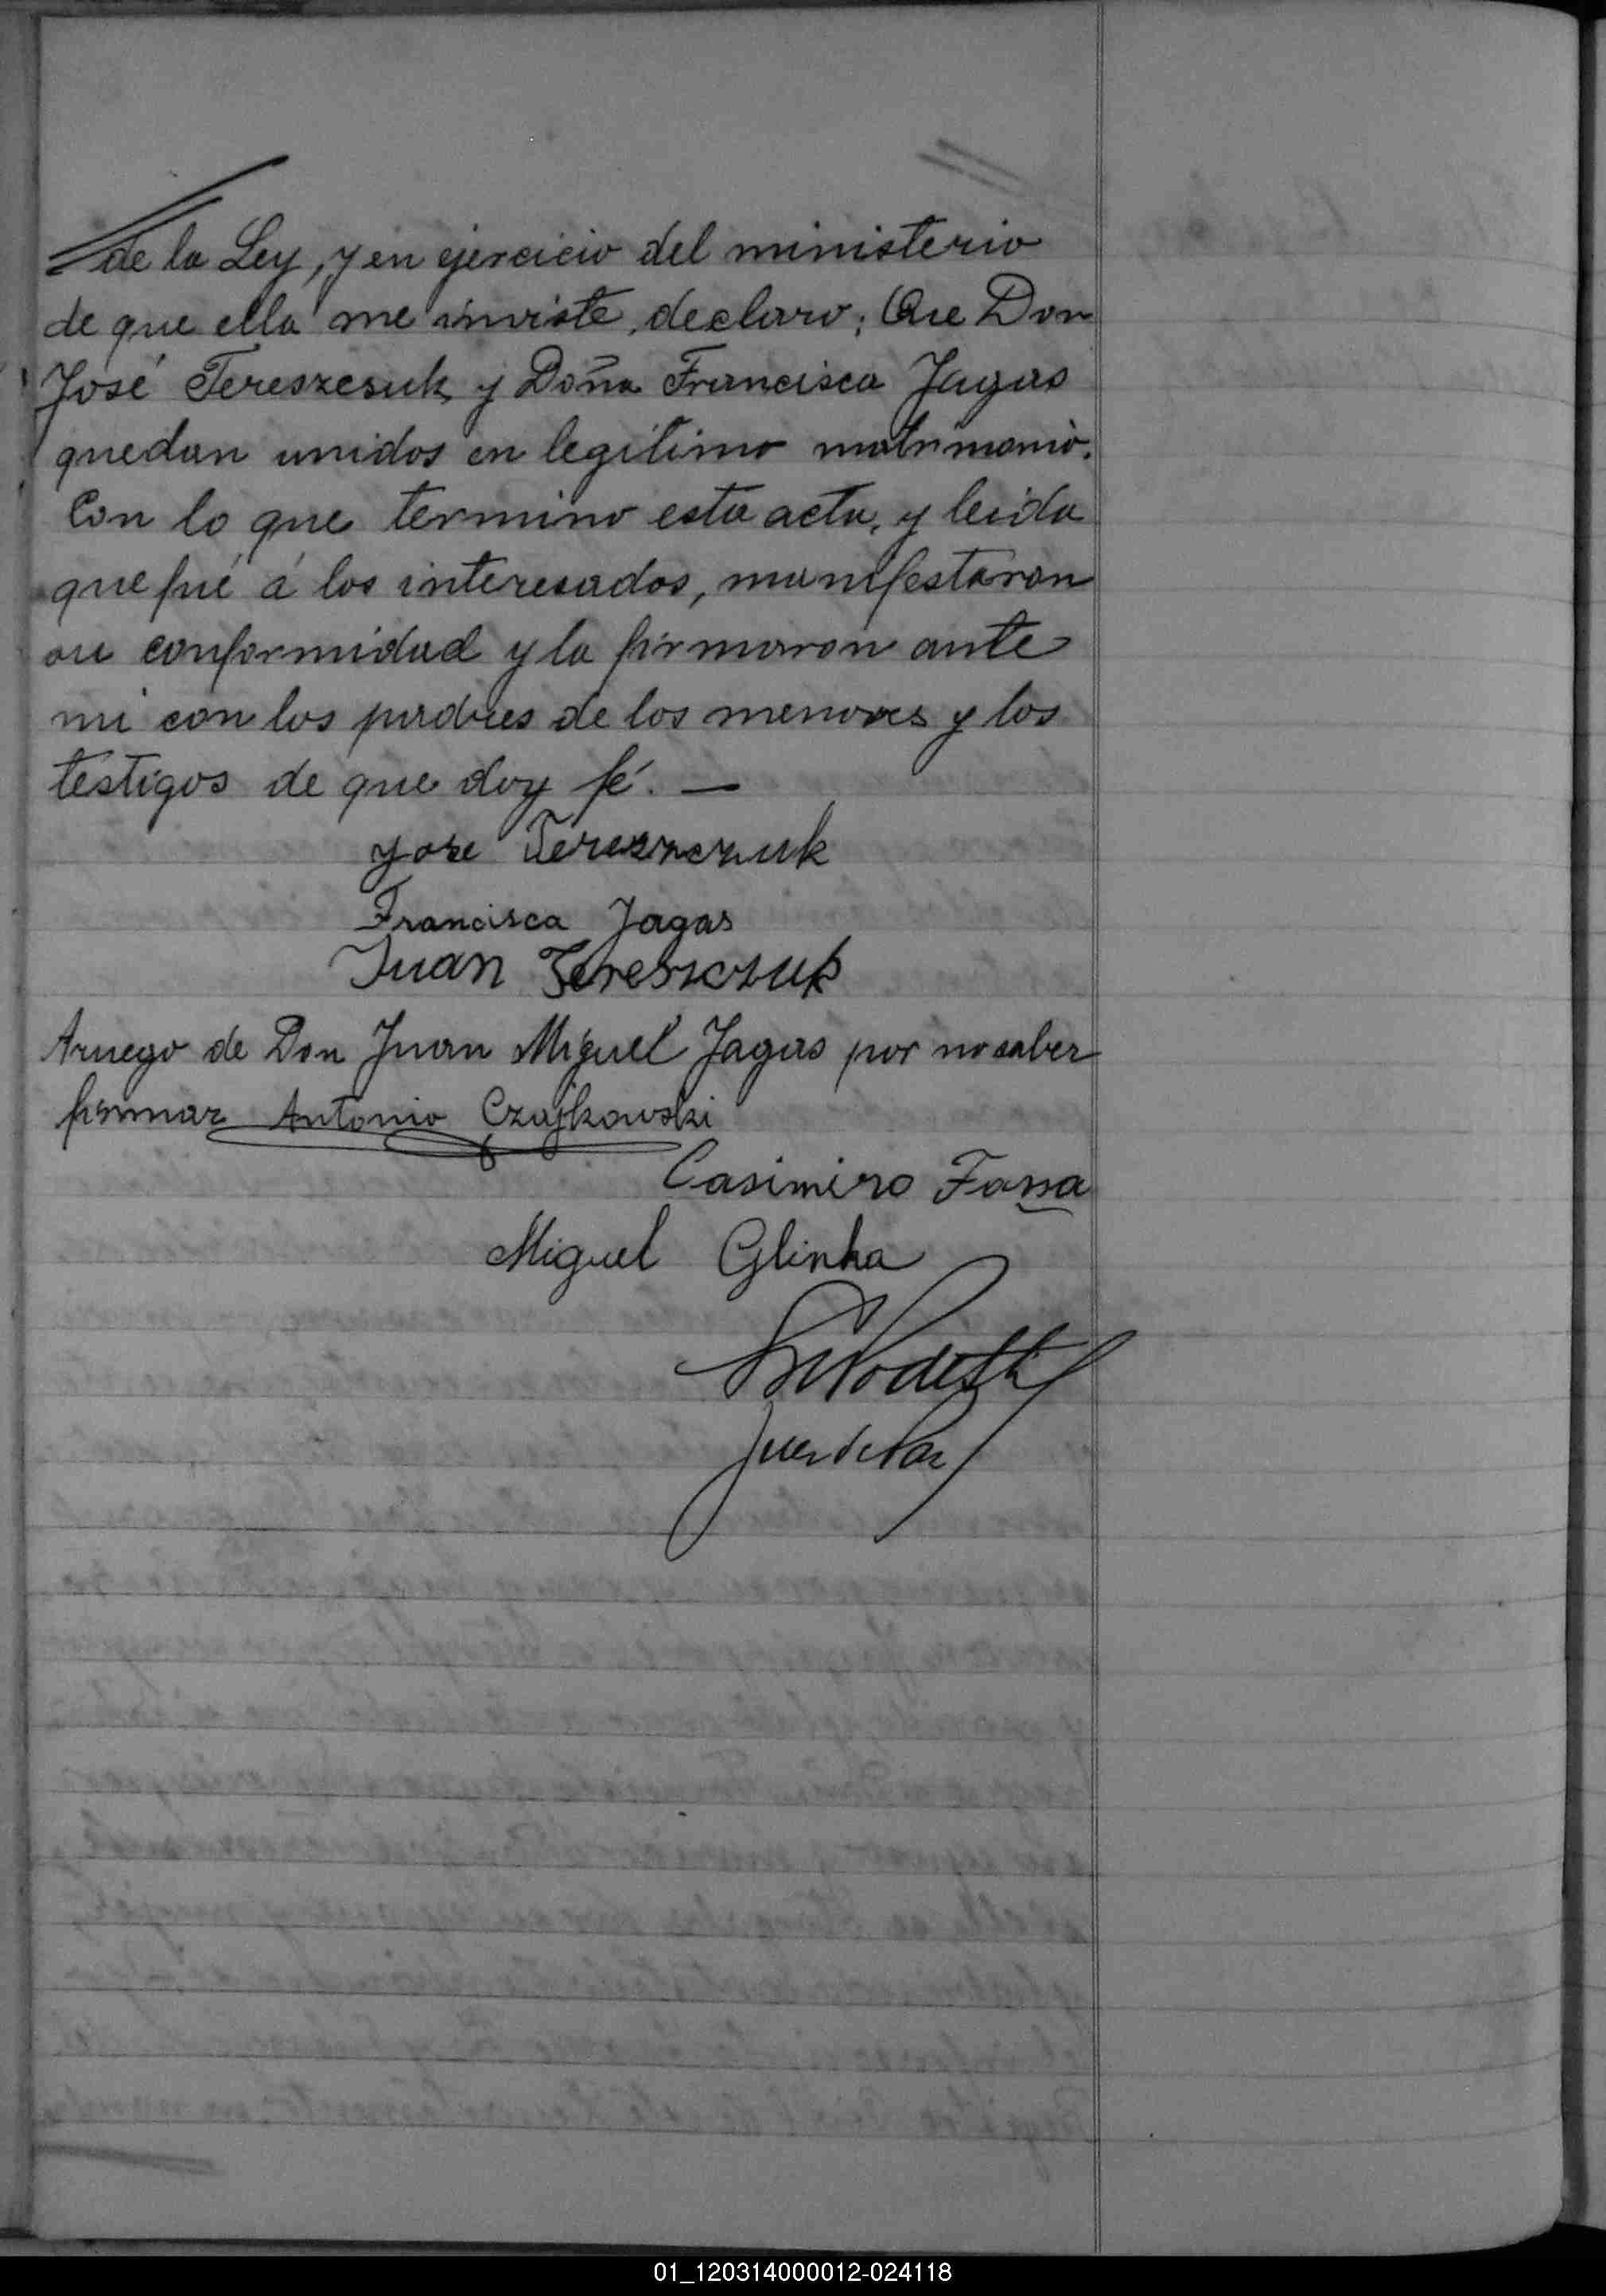 de la Ley, y en ejercicio del ministerio
de que ella me inviste, declaro; Que Don
José Tereszcsuk y Doña Francisca Jagas
quedan unidos en legítimo matrimonio.
Con lo que termino esta acta, y leida
que fué á los interesados, manifestaron
su conformidad y la firmaron ante
mi con los padres de los menores y los
testigos de que doy fé. —
Jose Tereszczuk
Francisca Jagas
Juan Tereszczuk
A ruego de Don Juan Miguel Jagas por no saber
firmar Antonio Czajkowski
Casimiro
Miguel Glinka
Juez de Paz
01_120314000012-024118